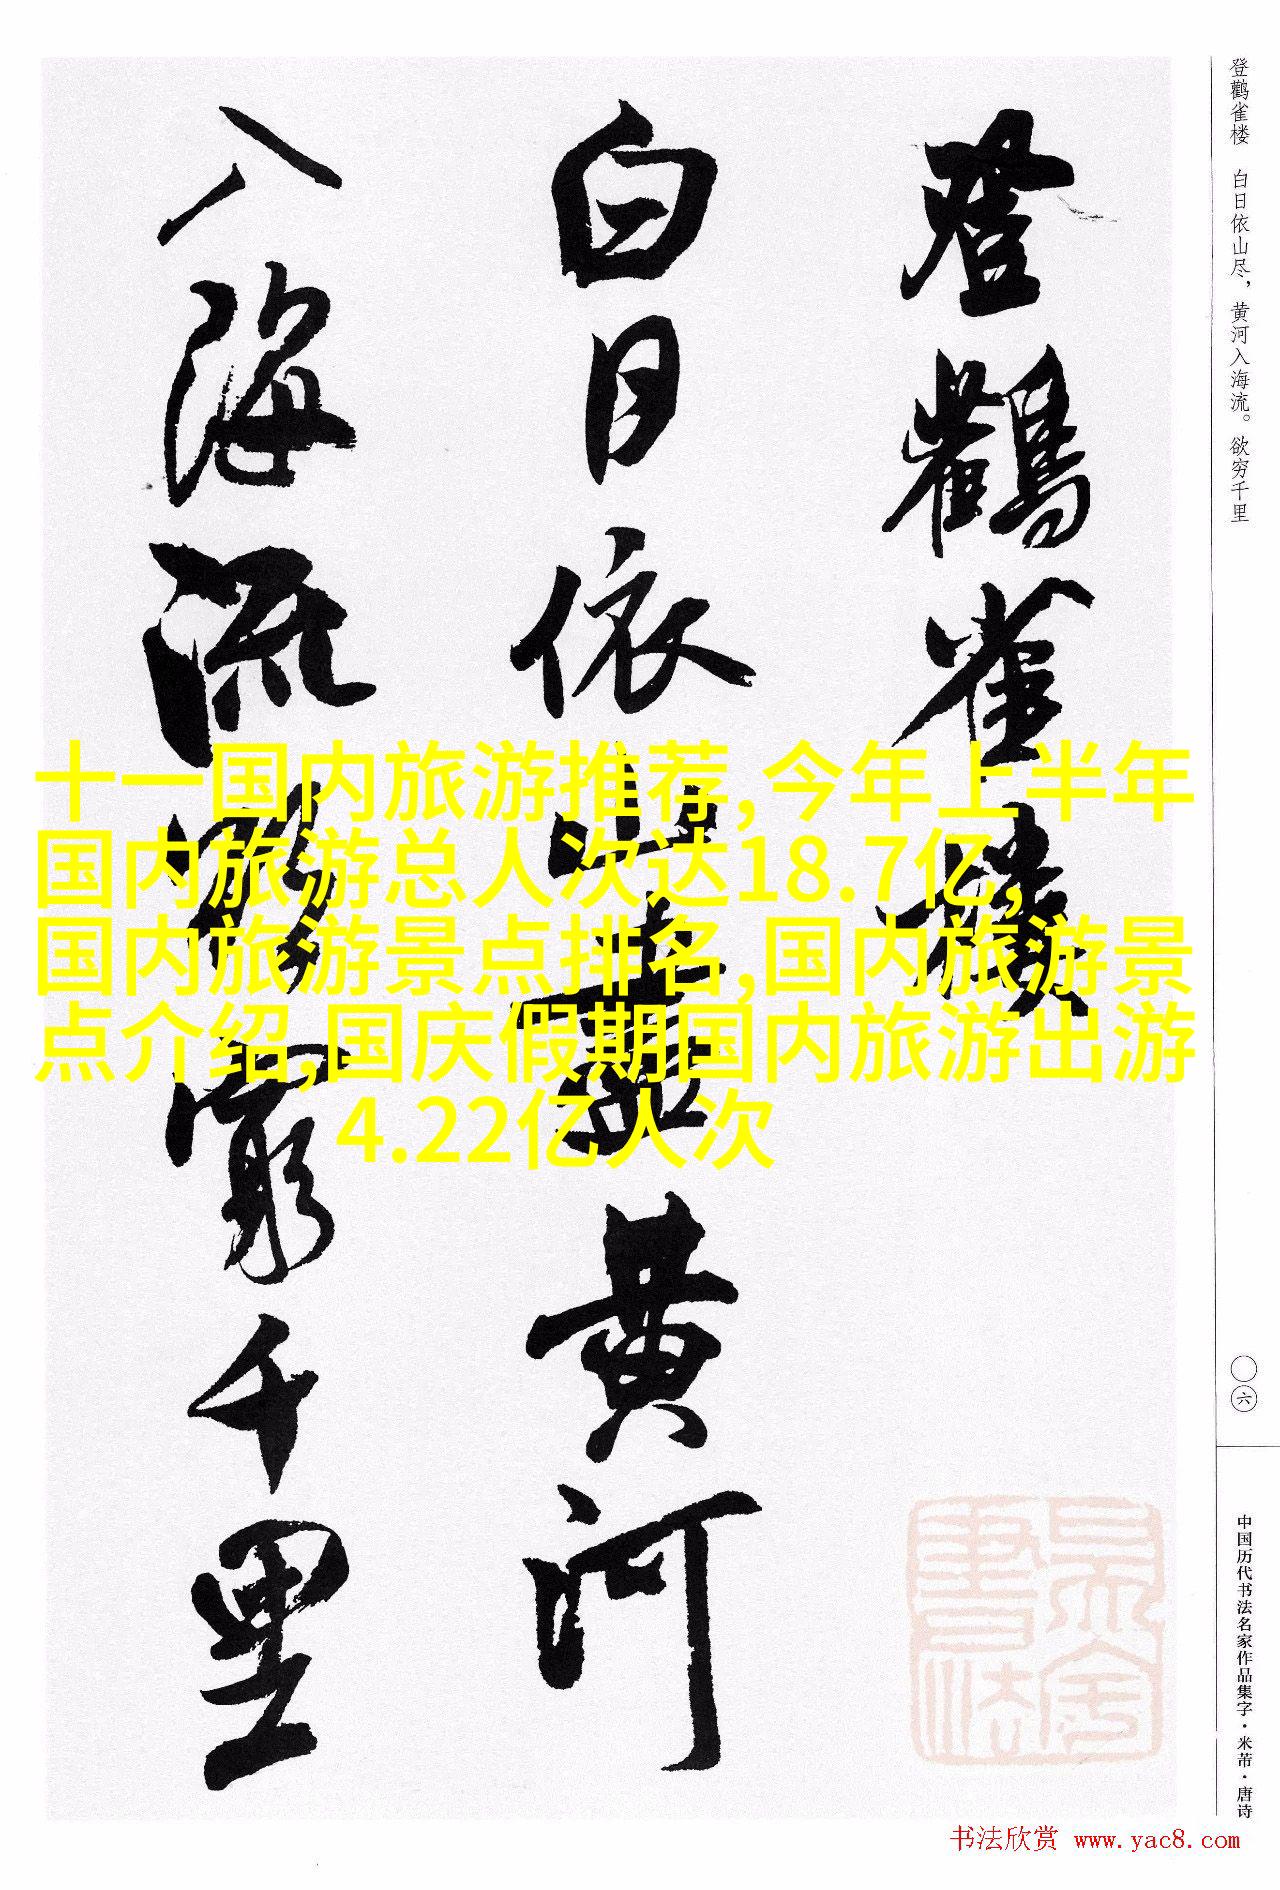 登鹳雀楼 白日依山尽，黄河入海流。欲穷千里
登鸛雀樓
白日依山盡黄河
入海流欲窮千里
十一国内旅游推荐,今年上半年
国内旅游总人次达18.7亿,
国内旅游景点排名,国内旅游景
点介绍,国庆假期国内旅游出游
4.22亿人次
〇六
中国历代书法名家作品集字·米芾·唐诗
书法欣赏 www.yac8.com